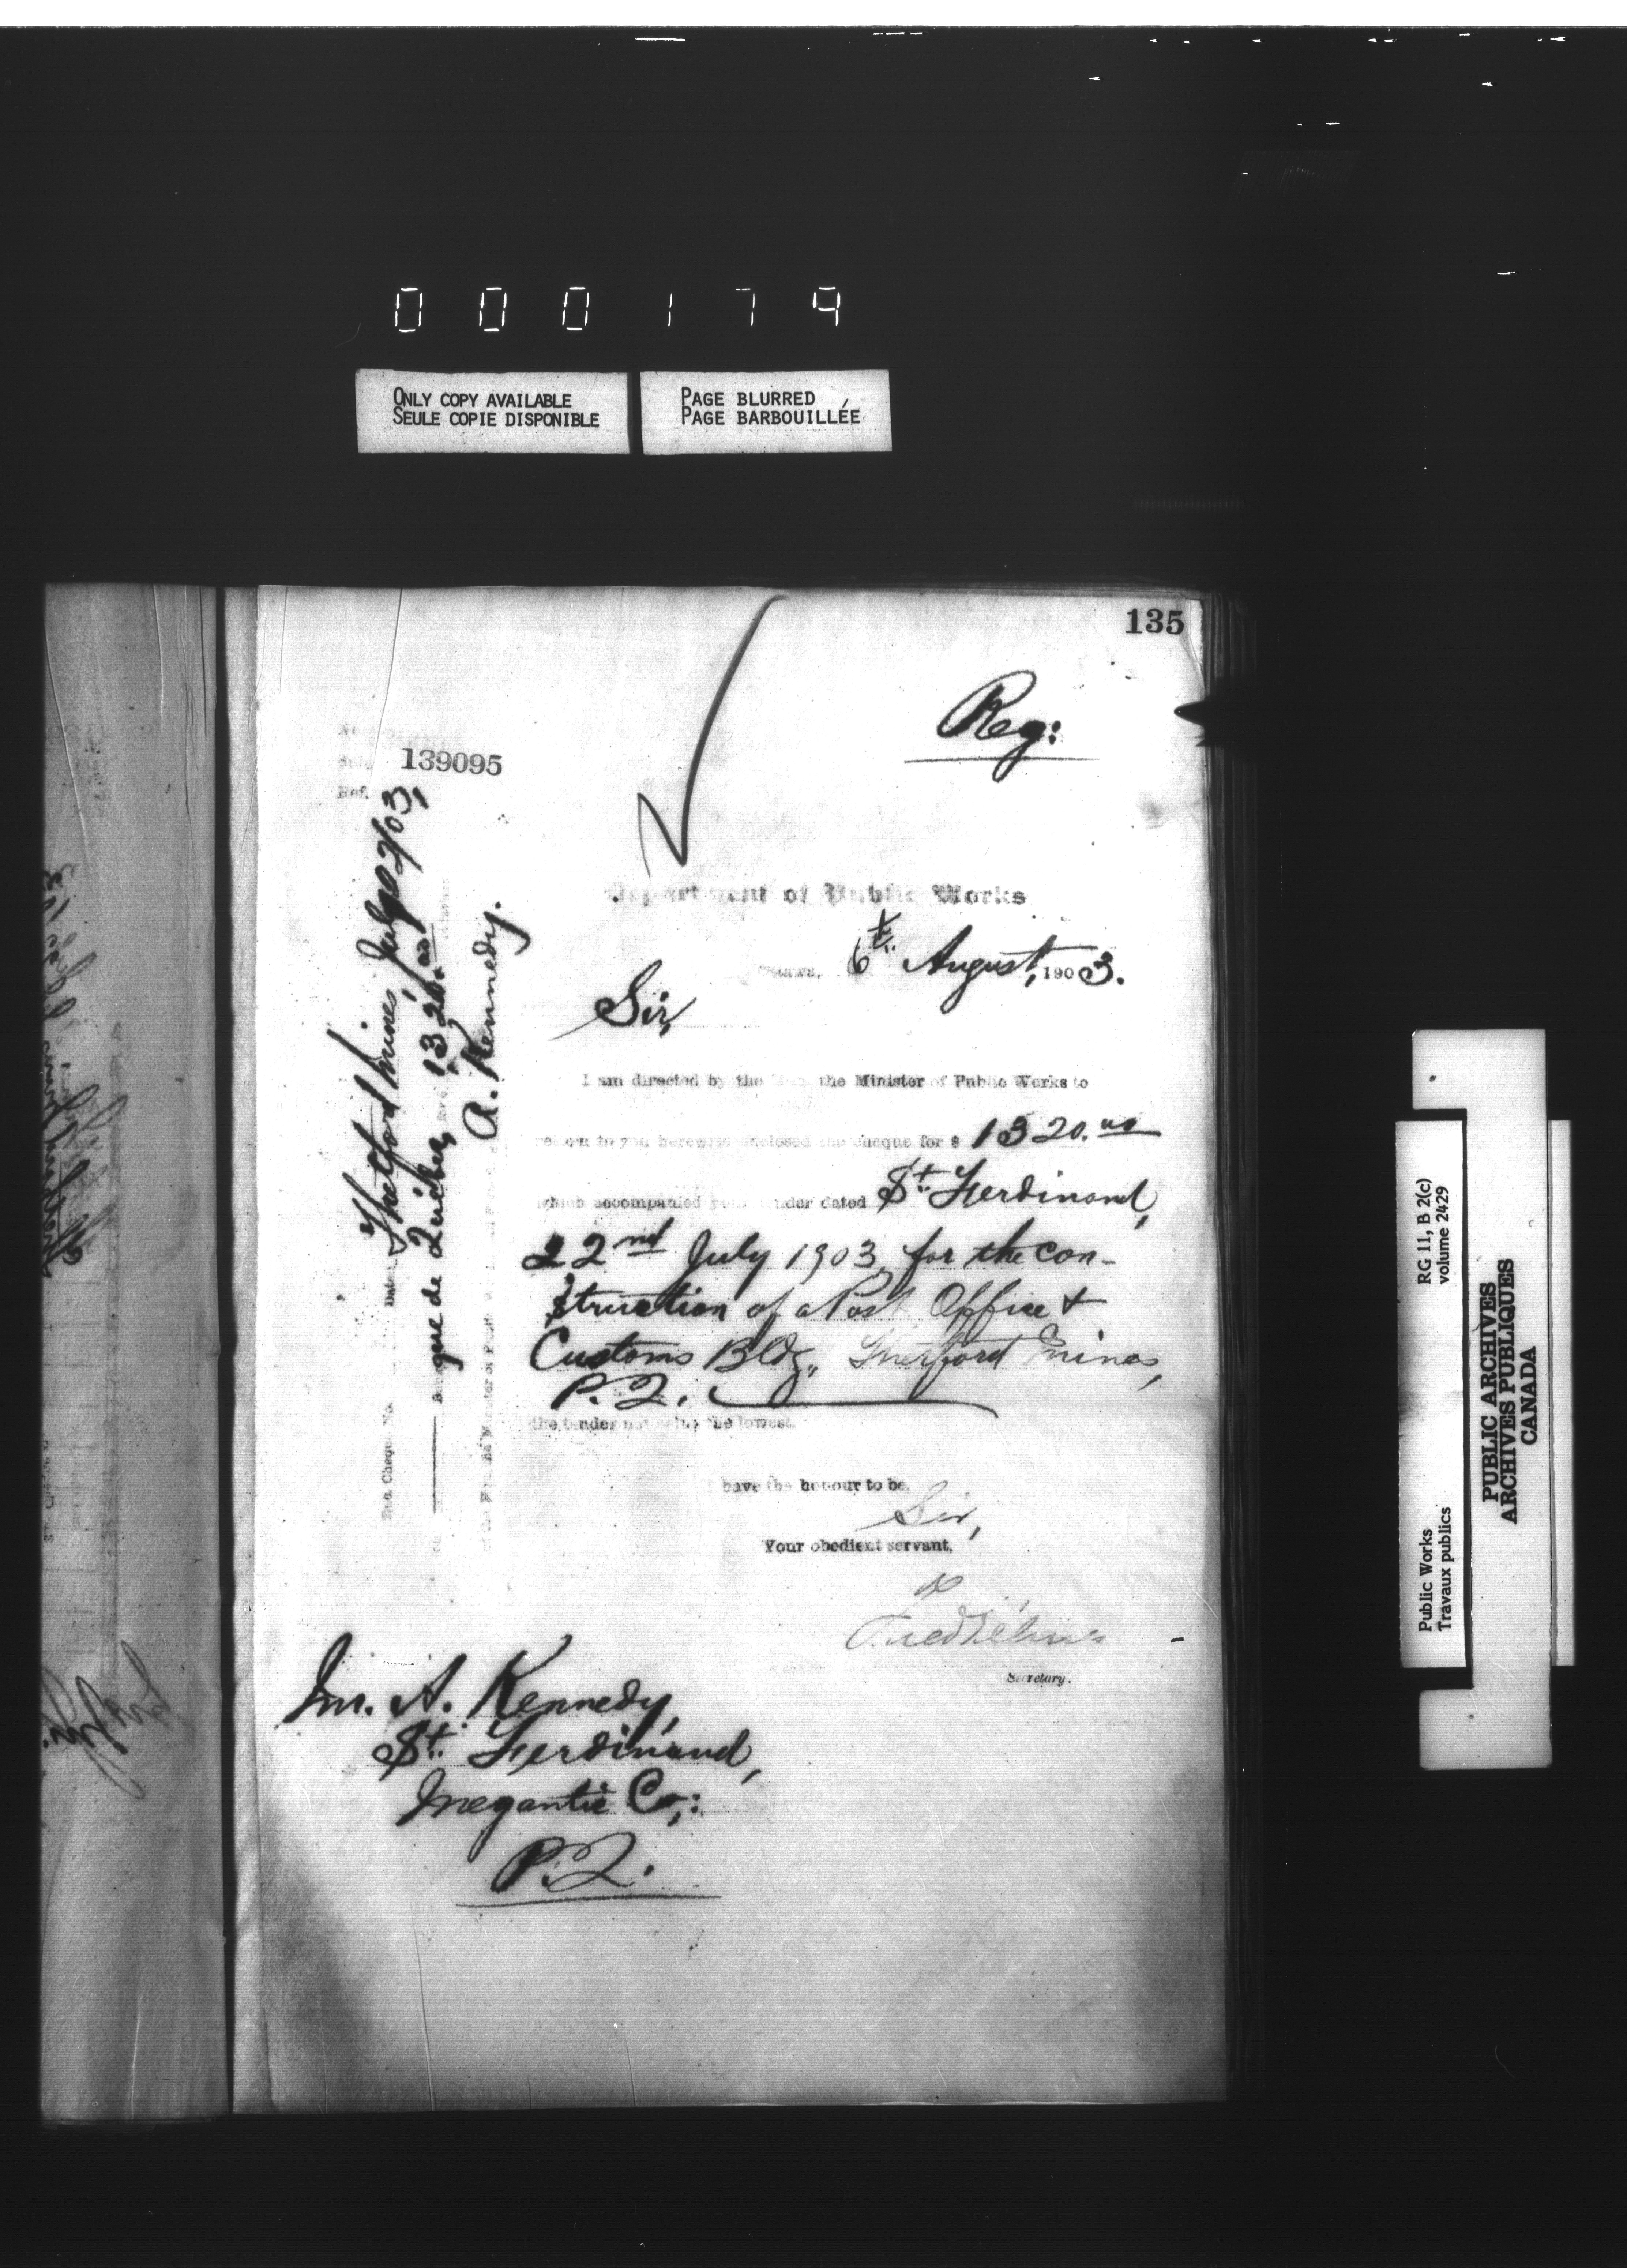 000179
ONLY COPY AVAILABLE
SEULE COPIE DISPONIBLE
PAGE BLURRED
PAGE BARBOUILLÉE
135
Reg:
139095
Ref.
Department of Public Works
6th August, 1903.
Sir,
I am directed by the the Minister of Public Works to
return to you herewith enclosed the cheque for $ 1320.00
which accompanied your tender dated St. Ferdinand,
22nd July 1903, for the con-
struction of a Post Office &
Customs Bldg., Thetford Mines,
P.Q.
the tender not being the lowest.
have the honour to be,
Sir,
Your obedient servant,
Secretary.
Mr. A. Kennedy,
St. Ferdinand,
Megantic Co.:
P.Q.
Cheque No. Dated Thetford Mines, July 22/03,
Banque de Québec, 1320.00
A. Kennedy.
Public Works
Travaux publics
RG 11, B 2(c)
volume 2429
PUBLIC ARCHIVES
ARCHIVES PUBLIQUES
CANADA